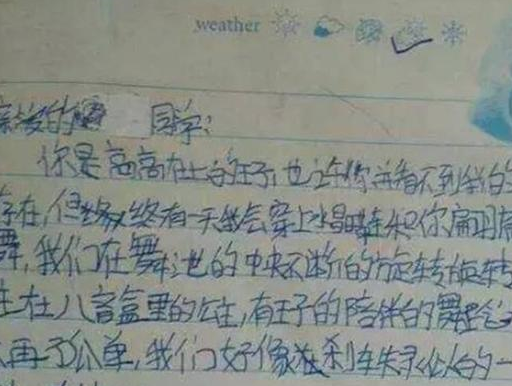 weather
亲爱的 同学:
你是高高在上的王子,也许你并看不到我的
存在,但终有一天我会穿上水晶鞋和你翩翩
舞,我们在舞池的中央不断的旋转旋转
在八音盒里的公主,有王子的陪伴的舞
再孤单,我们好像 刹车失灵似的一